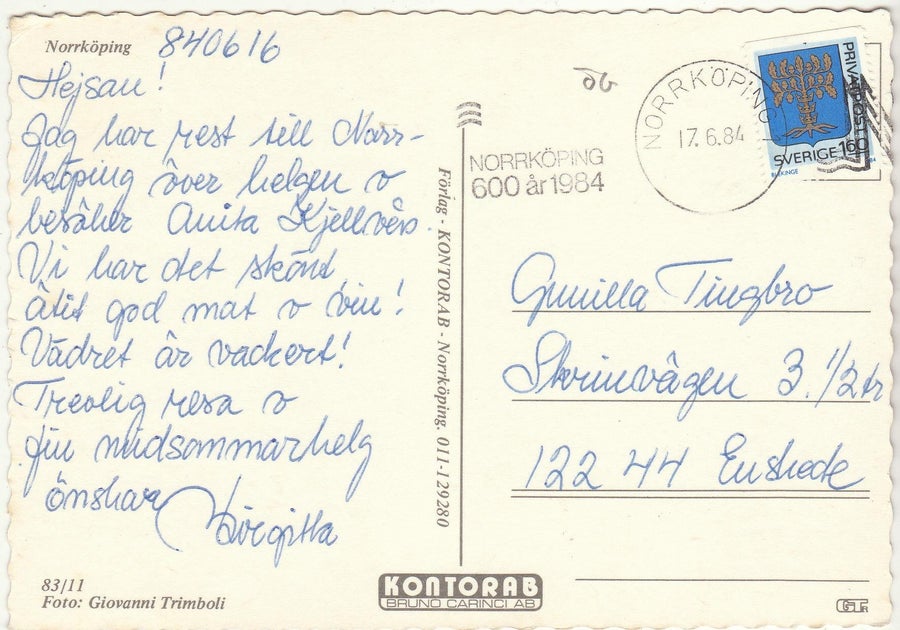 Norrköping 840616
Hejsan!
Jag har rest till Norr-
köping över helgen o
besöker Anita Kjellvörs.
Vi har det skönt,
ätit god mat o vin!
Vädret är vackert!
Trevlig resa o
fin midsommarhelg
önskar Birgitta
83/11
Foto: Giovanni Trimboli
Förlag - KONTORAB - Norrköping. 011-129280
KONTORAB
BRUNO CARINCI AB
NORRKÖPING
600 år 1984
NORRKÖPING
17.6.84
PRIVATPOST
SVERIGE 160
BLEKINGE
Gunilla Tingbro
Skrinvägen 3. 1/2 tr
122 44 Enskede
GTR